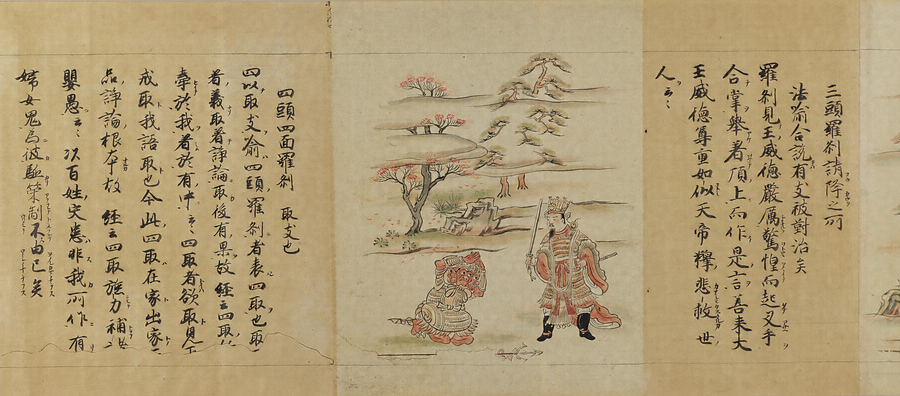 三頭羅刹請降之所
法喩合説有支被對治矣
羅刹見王威德嚴厲驚惶而起叉手
合掌舉著頂上而作是言善来大
王威德尊重如似天帝釋悲救世
人云々
四頭四面羅刹　取支也
四以取支喩四頭羅刹者表四取也取
者義取着諍論取後有果故経云四取
牽於我着於有中云々四取者欲取見
戒取我語取也今此四取在家出家
品諍論根本故経云四取旋力補
嬰愚云々次百姓災患非我所作有
婦女鬼為彼駈策制不由己矣